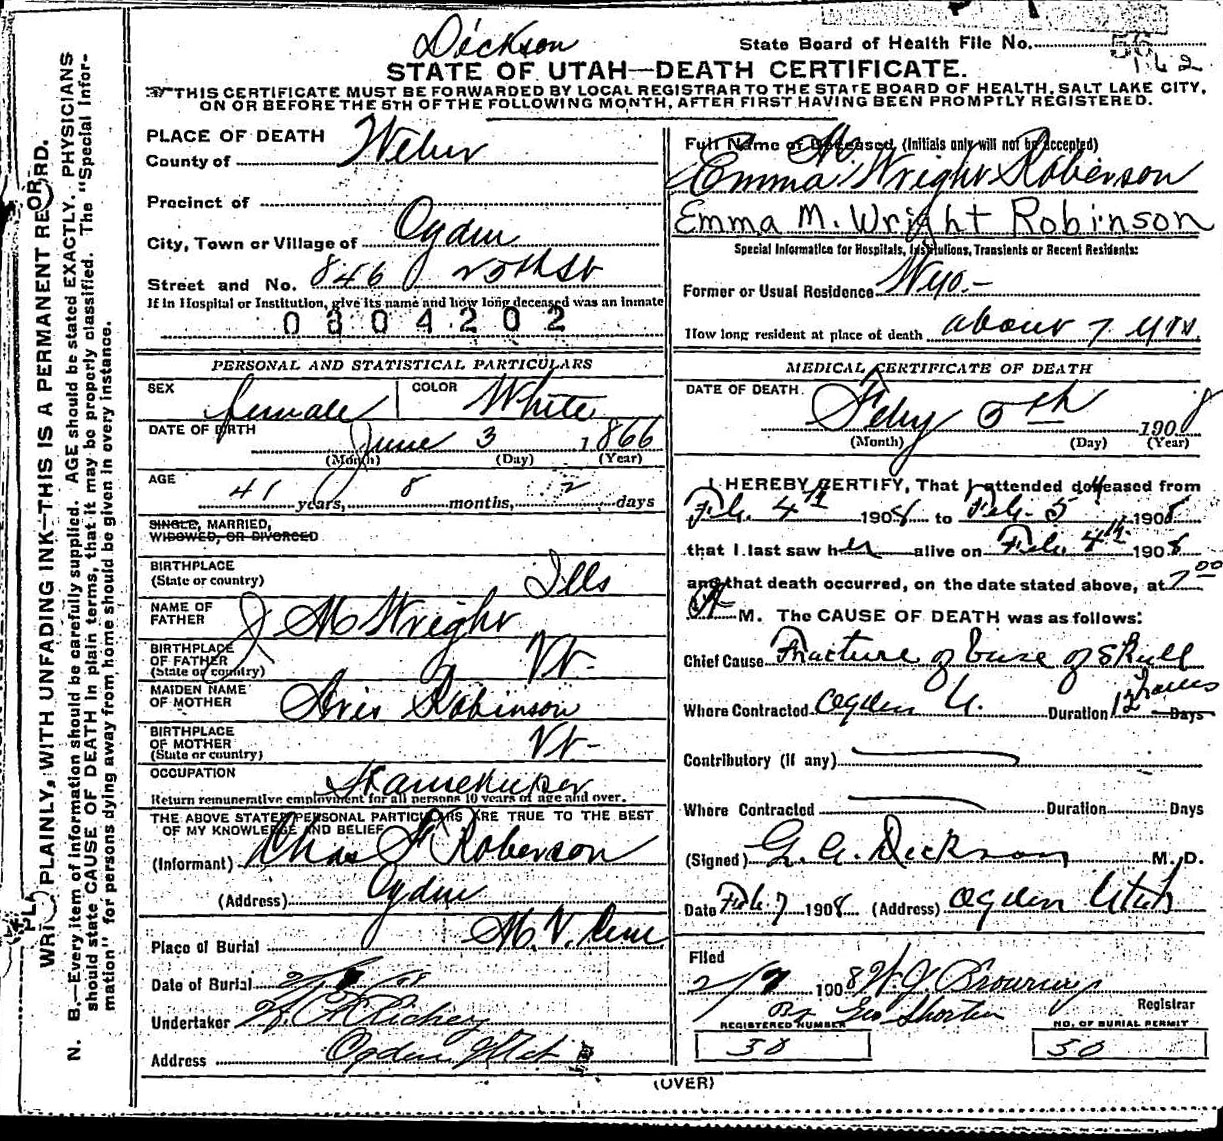 Dickson
State Board of Health File No.
162
STATE OF UTAH—DEATH CERTIFICATE.
THIS CERTIFICATE MUST BE FORWARDED BY LOCAL REGISTRAR TO THE STATE BOARD OF HEALTH, SALT LAKE CITY,
ON OR BEFORE THE 5TH OF THE FOLLOWING MONTH, AFTER FIRST HAVING BEEN PROMPTLY REGISTERED.
WRITE PLAINLY, WITH UNFADING INK—THIS IS A PERMANENT RECORD.
N. B.—Every item of information should be carefully supplied. AGE should be stated EXACTLY. PHYSICIANS
should state CAUSE OF DEATH in plain terms, that it may be properly classified. The "Special Infor-
mation" for persons dying away from home should be given in every instance.
PLACE OF DEATH
County of Weber
Precinct of
City, Town or Village of Ogden
Street and No. 846 25th St
If in Hospital or Institution, give its name and how long deceased was an inmate
0804202
PERSONAL AND STATISTICAL PARTICULARS
SEX female COLOR White
DATE OF BIRTH June 3 1866
(Month) (Day) (Year)
AGE 41 years, 8 months, 2 days
SINGLE, MARRIED,
WIDOWED, OR DIVORCED
BIRTHPLACE
(State or country) Ills
NAME OF
FATHER J M Wright
BIRTHPLACE
OF FATHER
(State or country) Vt.
MAIDEN NAME
OF MOTHER Avis Robinson
BIRTHPLACE
OF MOTHER
(State or country) Vt-
OCCUPATION Housekeeper
Return remunerative employment for all persons 10 years of age and over.
THE ABOVE STATED PERSONAL PARTICULARS ARE TRUE TO THE BEST
OF MY KNOWLEDGE AND BELIEF
(Informant) Chas Roberson
(Address) Ogden
Place of Burial
Date of Burial
Undertaker Richey
Address Ogden Utah
Full Name of Deceased, (Initials only will not be accepted)
Emma M. Wright Roberson
Emma M. Wright Robinson
Special Information for Hospitals, Institutions, Transients or Recent Residents:
Former or Usual Residence Wyo.-
How long resident at place of death about 7 yrs.
MEDICAL CERTIFICATE OF DEATH
DATE OF DEARTH. Feby 5th 1908
(Month) (Day) (Year)
I HEREBY CERTIFY, That I attended deceased from
Feb. 4th 1908 to Feb. 5th 1908
that I last saw her alive on Feb. 4th 1908
and that death occurred, on the date stated above, at 7 00
A M. The CAUSE OF DEATH was as follows:
Chief Cause Fracture of base of skull
Where Contracted Ogden U. Duration 12 hours Days
Contributory (if any)
Where Contracted Duration Days
(Signed) G. A. Dickson M. D.
Date Feb. 7 1908 (Address) Ogden Utah
Filed
2/7 1908 W. J. Browning
Registrar
By Geo Shorten
REGISTERED NUMBER NO. OF BURIAL PERMIT
50 50
(OVER)